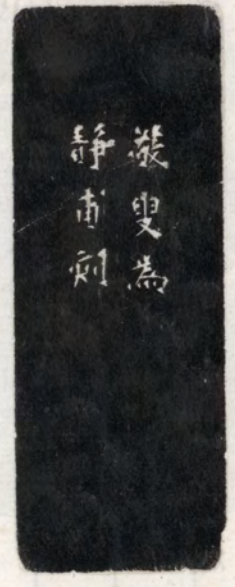 叟為
靜甫刻